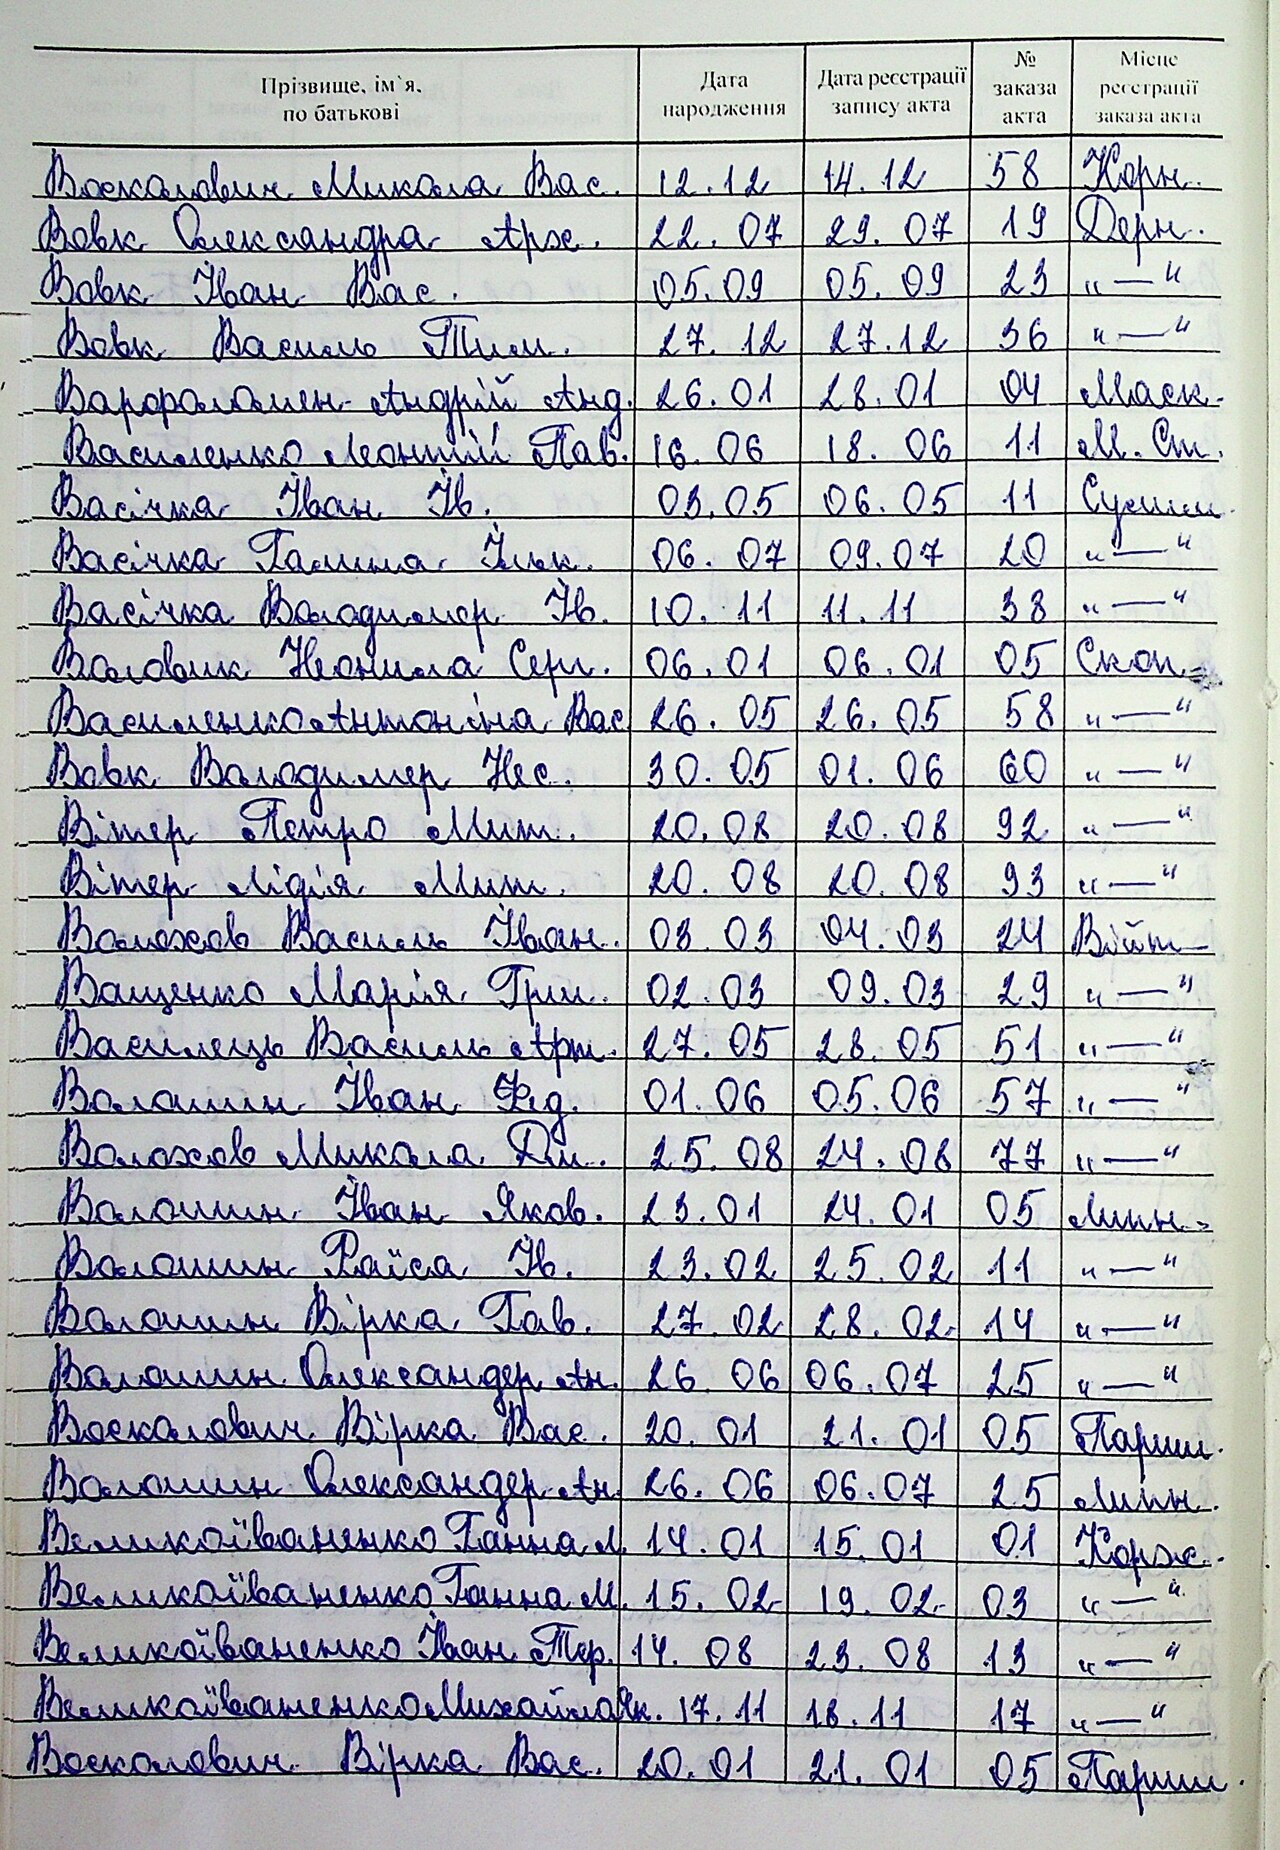 Прізвище, ім`я, по батькові Дата народження Дата реєстрації запису акта № заказа акта Місце реєстрації заказа акта
Воскалович Микола Вас. 12.12 14.12 58 Корн.
Вовк Олександра Арх. 22.07 29.07 19 Дерн.
Вовк Іван Вас. 05.09 05.09 23 "—"
Вовк Василь Тим. 27.12 27.12 36 "—"
Варфоломен Андрій Анд. 26.01 28.01 04 Маск.
Василенко Леонтій Пав. 16.06 18.06 11 М. Ст.
Васічка Іван Ів. 03.05 06.05 11 Сушк.
Васічка Галина Ільк. 06.07 09.07 20 "—"
Васічка Володимер Ів. 10.11 11.11 38 "—"
Воловик Неонила Серг. 06.01 06.01 05 Скоп.
Василенко Антоніна Вас 26.05 26.05 58 "—"
Вовк Володимер Нес. 30.05 01.06 60 "—"
Вітер Петро Мит. 20.08 20.08 92 "—"
Вітер Лідія Мит. 20.08 20.08 93 "—"
Волохов Василь Іван. 03.03 04.03 24 Війт.
Ващенко Марія Гри. 02.03 09.03 29 "—"
Василець Василь Арт. 27.05 28.05 51 "—"
Волошин Іван Фед. 01.06 05.06 57 "—"
Волохов Микола Дм. 25.08 24.08 77 "—"
Волошин Іван Яков. 23.01 24.01 05 Липн.
Волошин Раїса Ів. 23.02 25.02 11 "—"
Волошин Вірка Гав. 27.02 28.02 14 "—"
Волошин Олександер Ан. 26.06 06.07 25 "—"
Воскалович Вірка Вас. 20.01 21.01 05 Париш.
Волошин Олександер Ан. 26.06 06.07 25 Липн.
Великоіваненко Ганна Л. 14.01 15.01 01 Корж.
Великоїваненко Ганна М. 15.02 19.02 03 "—"
Великоїваненко Іван Тер. 14.08 23.08 13 "—"
Великоїваненко Михайло Як. 17.11 18.11 17 "—"
Воскалович Вірка Вас. 20.01 21.01 05 Париш.